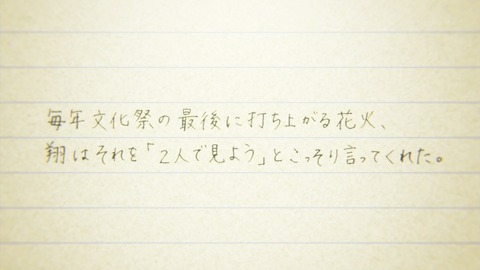 毎年文化祭の最後に打ち上がる花火、
翔はそれを「2人で見よう」とこっそり言ってくれた。